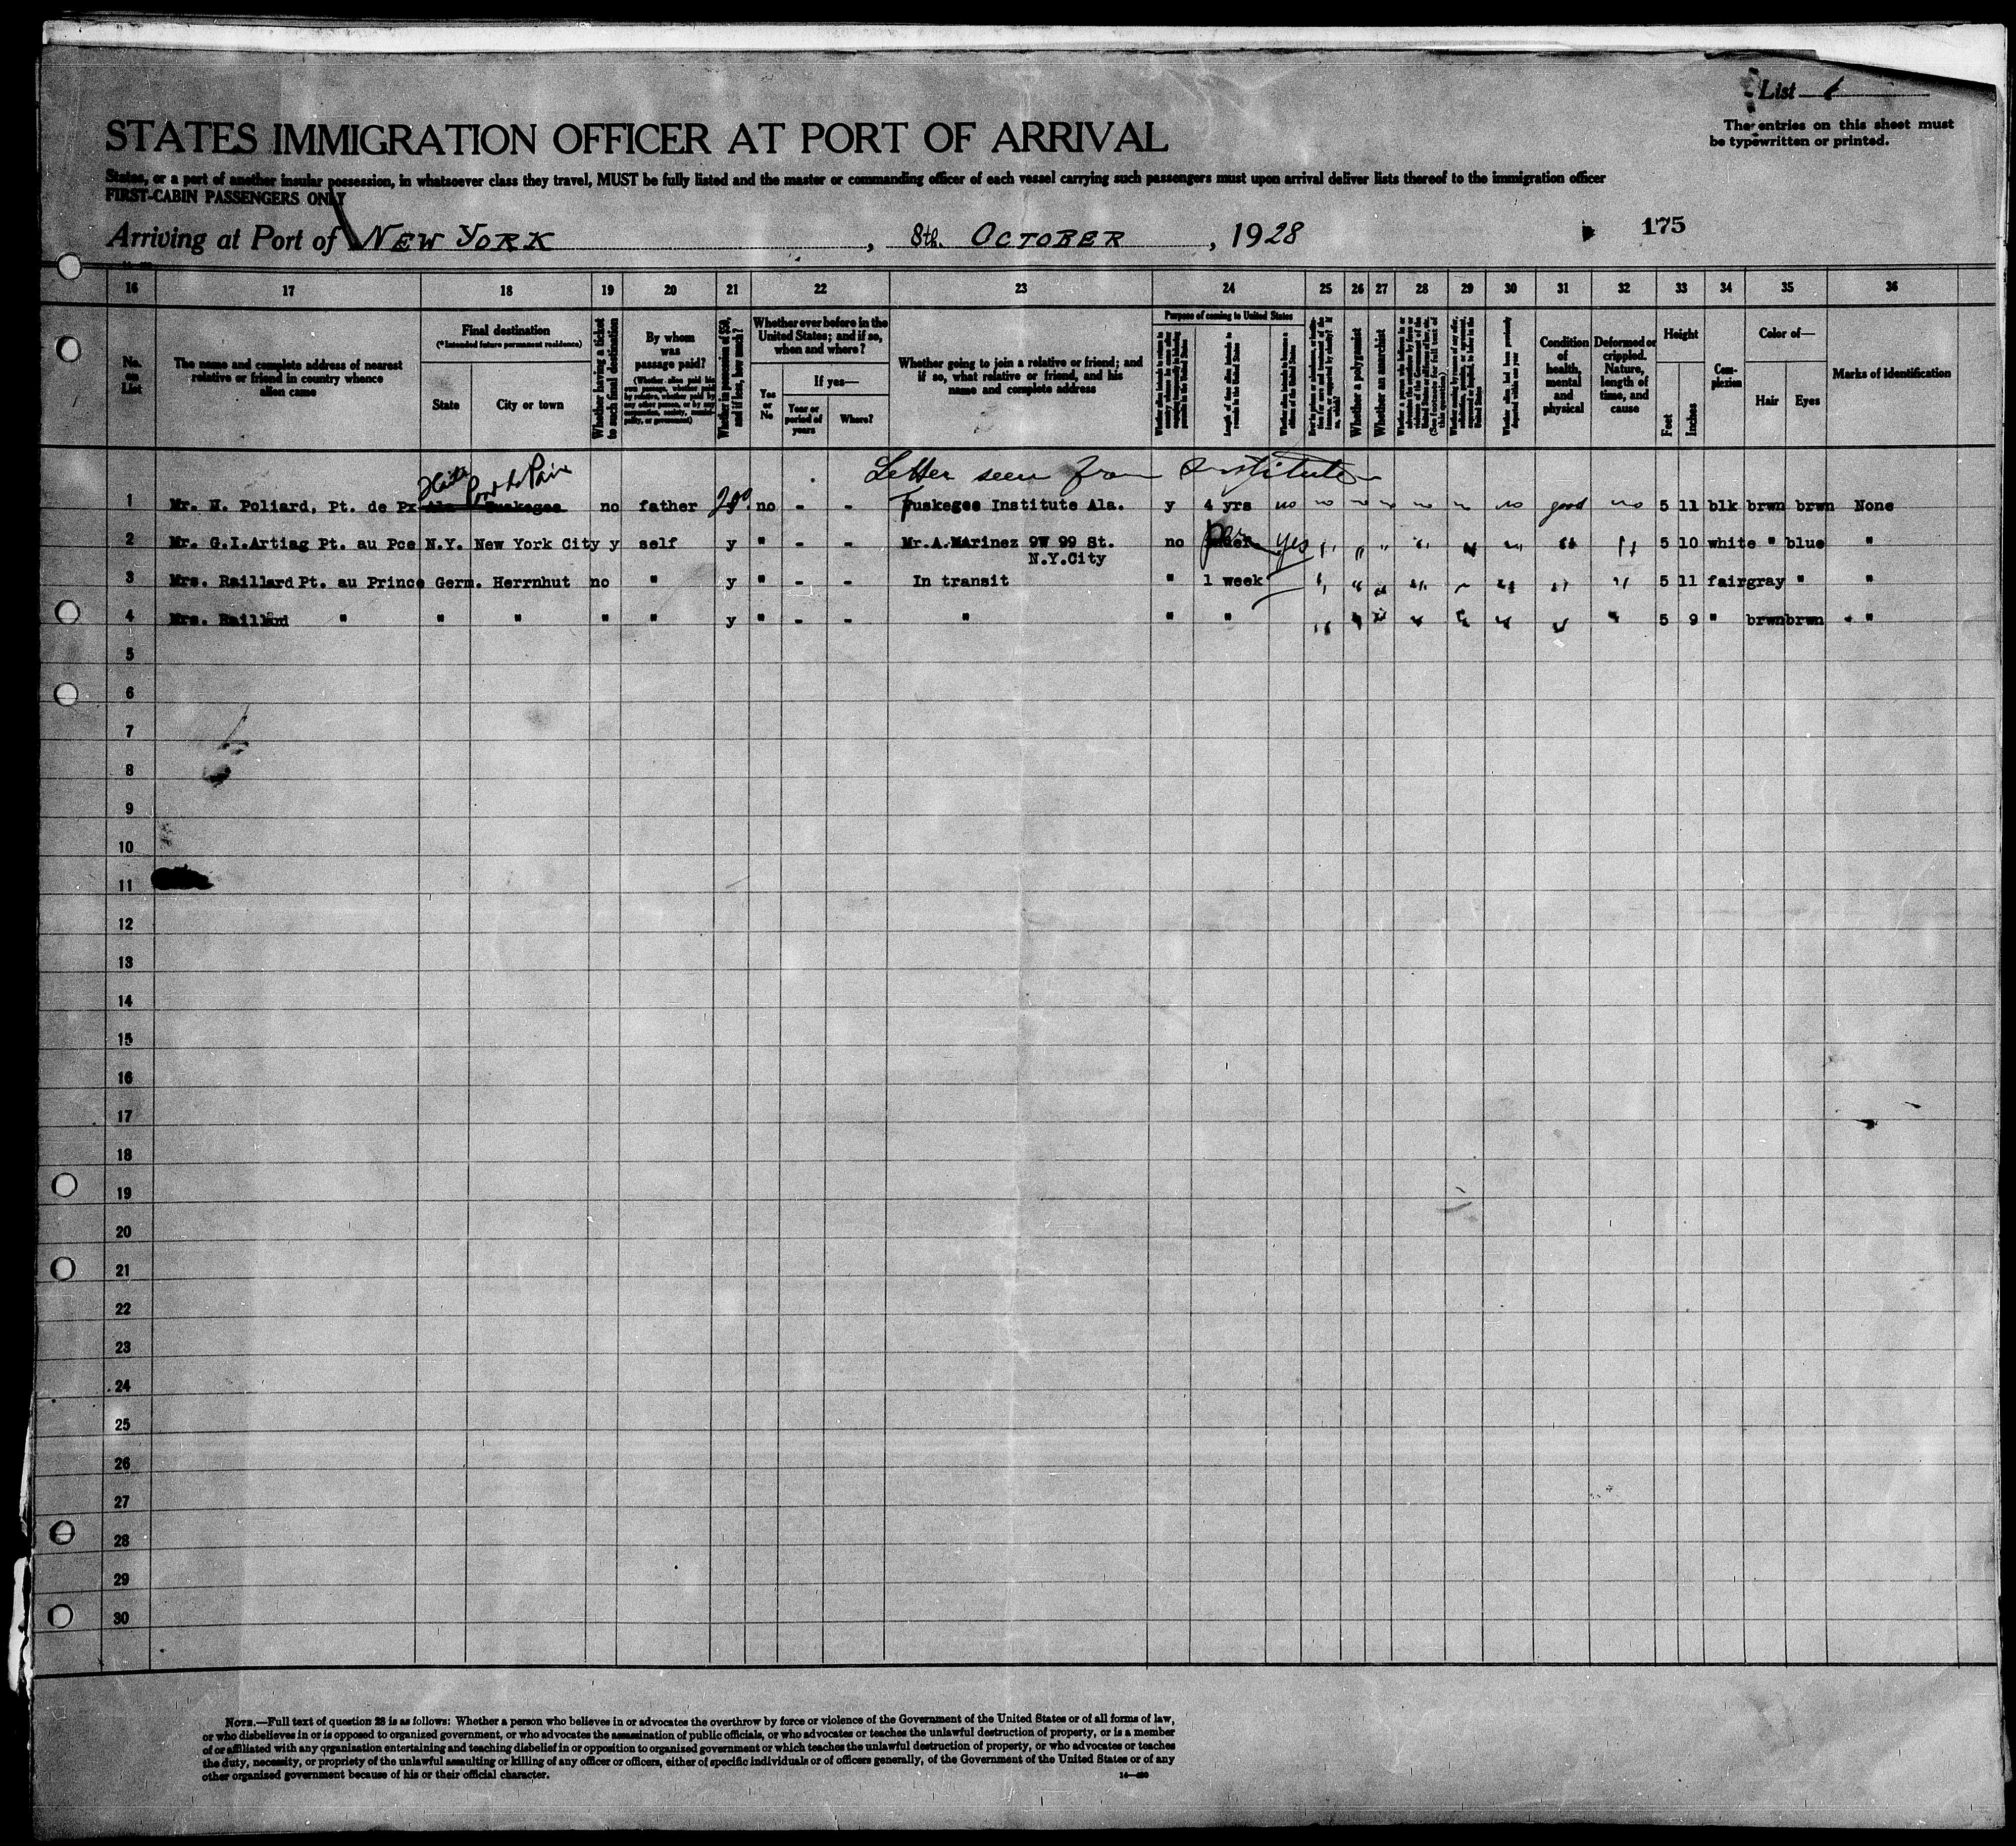 List
The entries on this sheet must
be typewritten or printed.
STATES IMMIGRATION OFFICER AT PORT OF ARRIVAL
States, or a port of another insular possession, in whatsoever class they travel, MUST be fully listed and the master or commanding officer of each vessel carrying such passengers must upon arrival deliver lists thereof to the immigration officer
FIRST-CABIN PASSENGERS ONLY
Arriving at Port of NEW YORK, 8th. OCTOBER, 1928
175
16 17 18 19 20 21 22 23 24 25 26 27 28 29 30 31 32 33 34 35 36
No. on List
The name and complete address of nearest relative or friend in country whence alien came
Final destination
(*Intended future permanent residence)
State
City or town
Whether having a ticket to such final destination
By whom was passage paid?
(Whether alien paid his own passage, whether paid by relative, whether paid by any other person, or by any corporation, society, municipality, or government)
Whether in possession of $50, and if less, how much?
Whether ever before in the United States; and if so, when and where?
Yes or No
If yes—
Year or period of years
Where?
Whether going to join a relative or friend; and if so, what relative or friend, and his name and complete address
Purpose of coming to United States
Length of time alien intends to remain in the United States
Whether alien intends to become a citizen of the United States
Whether a polygamist
Whether an anarchist
Whether alien had been previously deported within one year
Condition of health, mental and physical
Deformed or crippled. Nature, length of time, and cause
Height
Feet
Inches
Complexion
Color of—
Hair
Eyes
Marks of identification
Letter seen from Institute
1 Mr. N. Poliard, Pt. de Px Ala Tuskegee no father 200 no - - Tuskegee Institute Ala. y 4 yrs no no no no no no no good no 5 11 blk brwn brwn None
2 Mr. G.I.Artiag Pt. au Pce N.Y. New York City y self y " - - Mr.A.MArinez 9W 99 St. no yes " " " " " " " " 5 10 white " blue "
N.Y.City
3 Mrs. Raillard Pt. au Prince Germ. Herrnhut no " y " - - In transit " 1 week " " " " " " " 5 11 fair gray " "
4 Mrs. Raillard " " " " " y " - - " " " " " " " " " " " 5 9 " brwn brwn "
5
6
7
8
9
10
11
12
13
14
15
16
17
18
19
20
21
22
23
24
25
26
27
28
29
30
NOTE.—Full text of question 28 is as follows: Whether a person who believes in or advocates the overthrow by force or violence of the Government of the United States or of all forms of law,
or who disbelieves in or is opposed to organized government, or who advocates the assassination of public officials, or who advocates or teaches the unlawful destruction of property, or is a member
of or affiliated with any organization entertaining and teaching disbelief in or opposition to organized government or which teaches the unlawful destruction of property, or who advocates or teaches
the duty, necessity, or propriety of the unlawful assaulting or killing of any officer or officers, either of specific individuals or of officers generally, of the Government of the United States or of any
other organized government because of his or their official character.